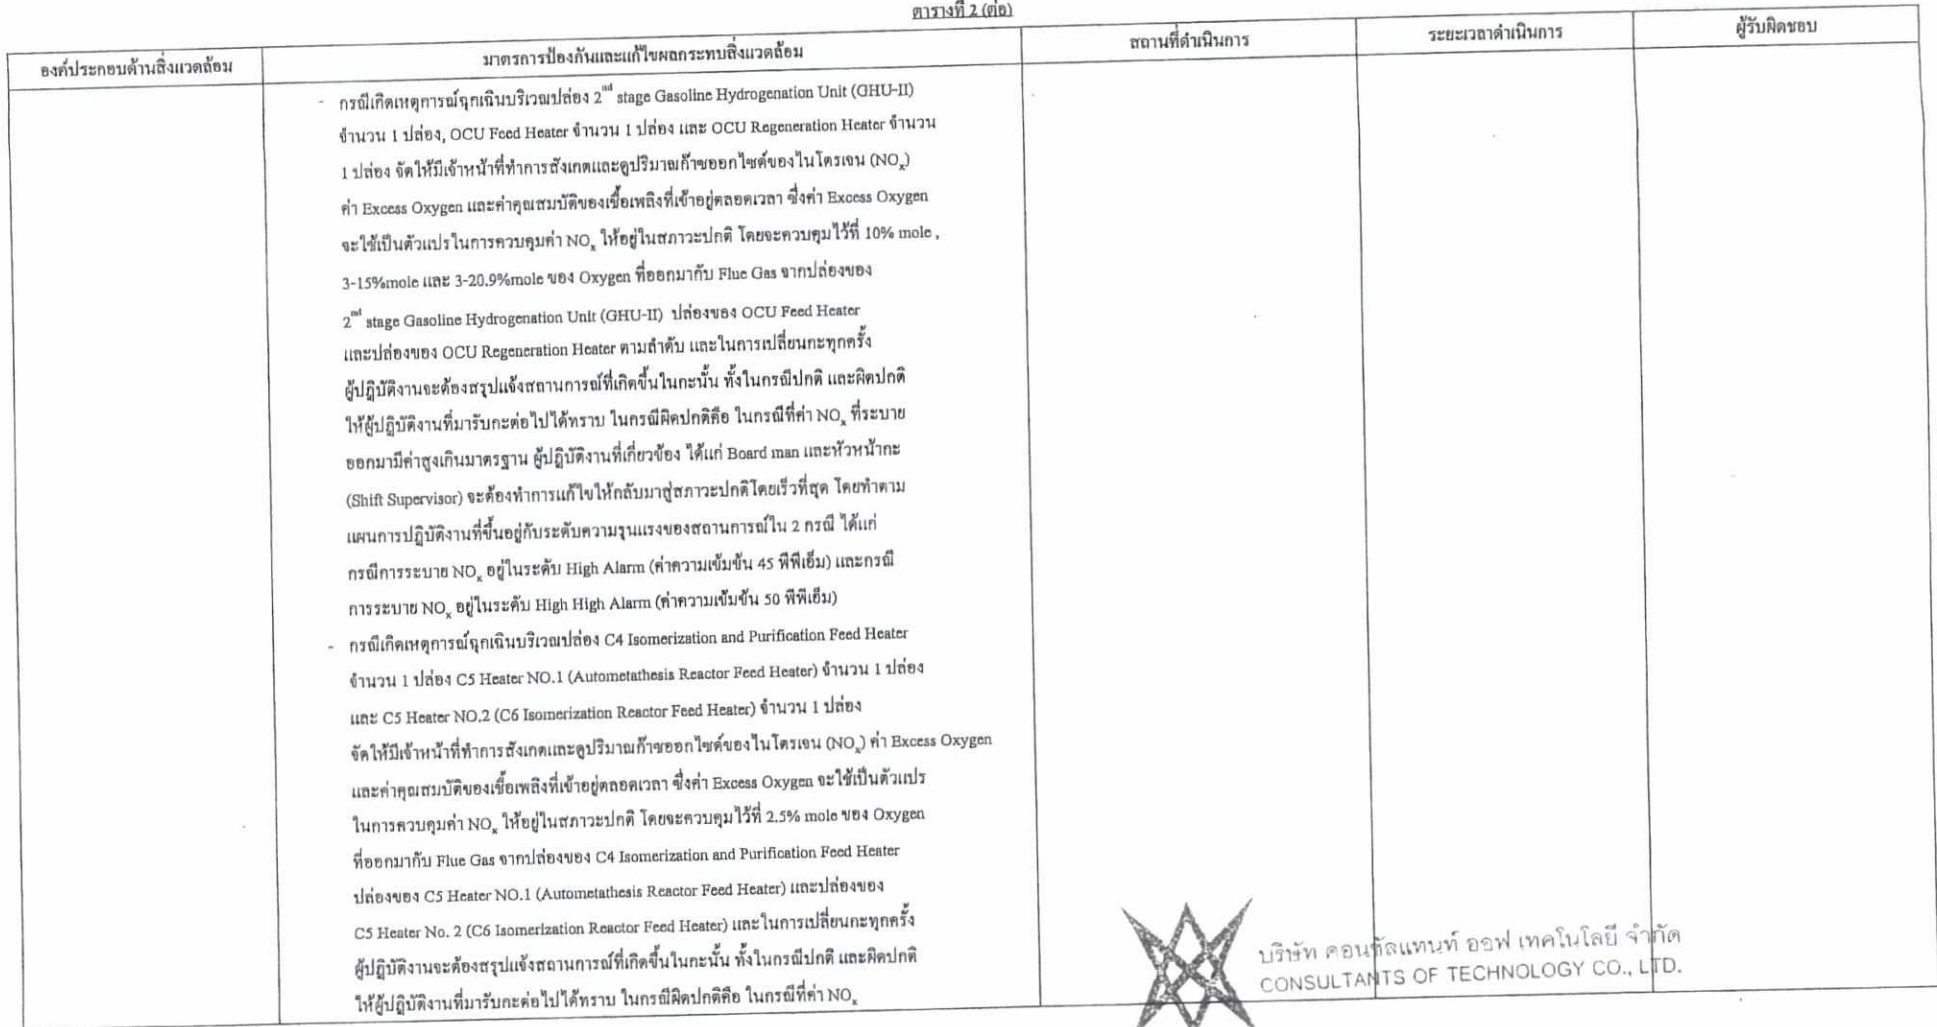 ตารางที่ 2 (ต่อ)
องค์ประกอบด้านสิ่งแวดล้อม มาตรการป้องกันและแก้ไขผลกระทบสิ่งแวดล้อม สถานที่ดำเนินการ ระยะเวลาดำเนินการ ผู้รับผิดชอบ
- กรณีเกิดเหตุการณ์ฉุกเฉินบริเวณปล่อง 2nd stage Gasoline Hydrogenation Unit (GHU-II)
จำนวน 1 ปล่อง, OCU Feed Heater จำนวน 1 ปล่อง และ OCU Regeneration Heater จำนวน
1 ปล่อง จัดให้มีเจ้าหน้าที่ทำการสังเกตและดูปริมาณก๊าซออกไซด์ของไนโตรเจน (NOx)
ค่า Excess Oxygen และค่าคุณสมบัติของเชื้อเพลิงที่เข้าอยู่ตลอดเวลา ซึ่งค่า Excess Oxygen
จะใช้เป็นตัวแปรในการควบคุมค่า NOx ให้อยู่ในสภาวะปกติ โดยจะควบคุมไว้ที่ 10% mole ,
3-15%mole และ 3-20.9%mole ของ Oxygen ที่ออกมากับ Flue Gas จากปล่องของ
2nd stage Gasoline Hydrogenation Unit (GHU-II) ปล่องของ OCU Feed Heater
และปล่องของ OCU Regeneration Heater ตามลำดับ และในการเปลี่ยนกะทุกครั้ง
ผู้ปฏิบัติงานจะต้องสรุปแจ้งสถานการณ์ที่เกิดขึ้นในกะนั้น ทั้งในกรณีปกติ และผิดปกติ
ให้ผู้ปฏิบัติงานที่มารับกะต่อไปได้ทราบ ในกรณีผิดปกติคือ ในกรณีที่ค่า NOx ที่ระบาย
ออกมามีค่าสูงเกินมาตรฐาน ผู้ปฏิบัติงานที่เกี่ยวข้อง ได้แก่ Board man และหัวหน้ากะ
(Shift Supervisor) จะต้องทำการแก้ไขให้กลับมาสู่สภาวะปกติโดยเร็วที่สุด โดยทำตาม
แผนการปฏิบัติงานที่ขึ้นอยู่กับระดับความรุนแรงของสถานการณ์ใน 2 กรณี ได้แก่
กรณีการระบาย NOx อยู่ในระดับ High Alarm (ค่าความเข้มข้น 45 พีพีเอ็ม) และกรณี
การระบาย NOx อยู่ในระดับ High High Alarm (ค่าความเข้มข้น 50 พีพีเอ็ม)
- กรณีเกิดเหตุการณ์ฉุกเฉินบริเวณปล่อง C4 Isomerization and Purification Feed Heater
จำนวน 1 ปล่อง C5 Heater NO.1 (Autometathesis Reactor Feed Heater) จำนวน 1 ปล่อง
และ C5 Heater NO.2 (C6 Isomerization Reactor Feed Heater) จำนวน 1 ปล่อง
จัดให้มีเจ้าหน้าที่ทำการสังเกตและดูปริมาณก๊าซออกไซด์ของไนโตรเจน (NOx) ค่า Excess Oxygen
และค่าคุณสมบัติของเชื้อเพลิงที่เข้าอยู่ตลอดเวลา ซึ่งค่า Excess Oxygen จะใช้เป็นตัวแปร
ในการควบคุมค่า NOx ให้อยู่ในสภาวะปกติ โดยจะควบคุมไว้ที่ 2.5% mole ของ Oxygen
ที่ออกมากับ Flue Gas จากปล่องของ C4 Isomerization and Purification Feed Heater
ปล่องของ C5 Heater NO.1 (Autometathesis Reactor Feed Heater) และปล่องของ
C5 Heater No. 2 (C6 Isomerization Reactor Feed Heater) และในการเปลี่ยนกะทุกครั้ง
ผู้ปฏิบัติงานจะต้องสรุปแจ้งสถานการณ์ที่เกิดขึ้นในกะนั้น ทั้งในกรณีปกติ และผิดปกติ
ให้ผู้ปฏิบัติงานที่มารับกะต่อไปได้ทราบ ในกรณีผิดปกติคือ ในกรณีที่ค่า NOx
บริษัท คอนซัลแทนท์ ออฟ เทคโนโลยี จำกัด
CONSULTANTS OF TECHNOLOGY CO., LTD.